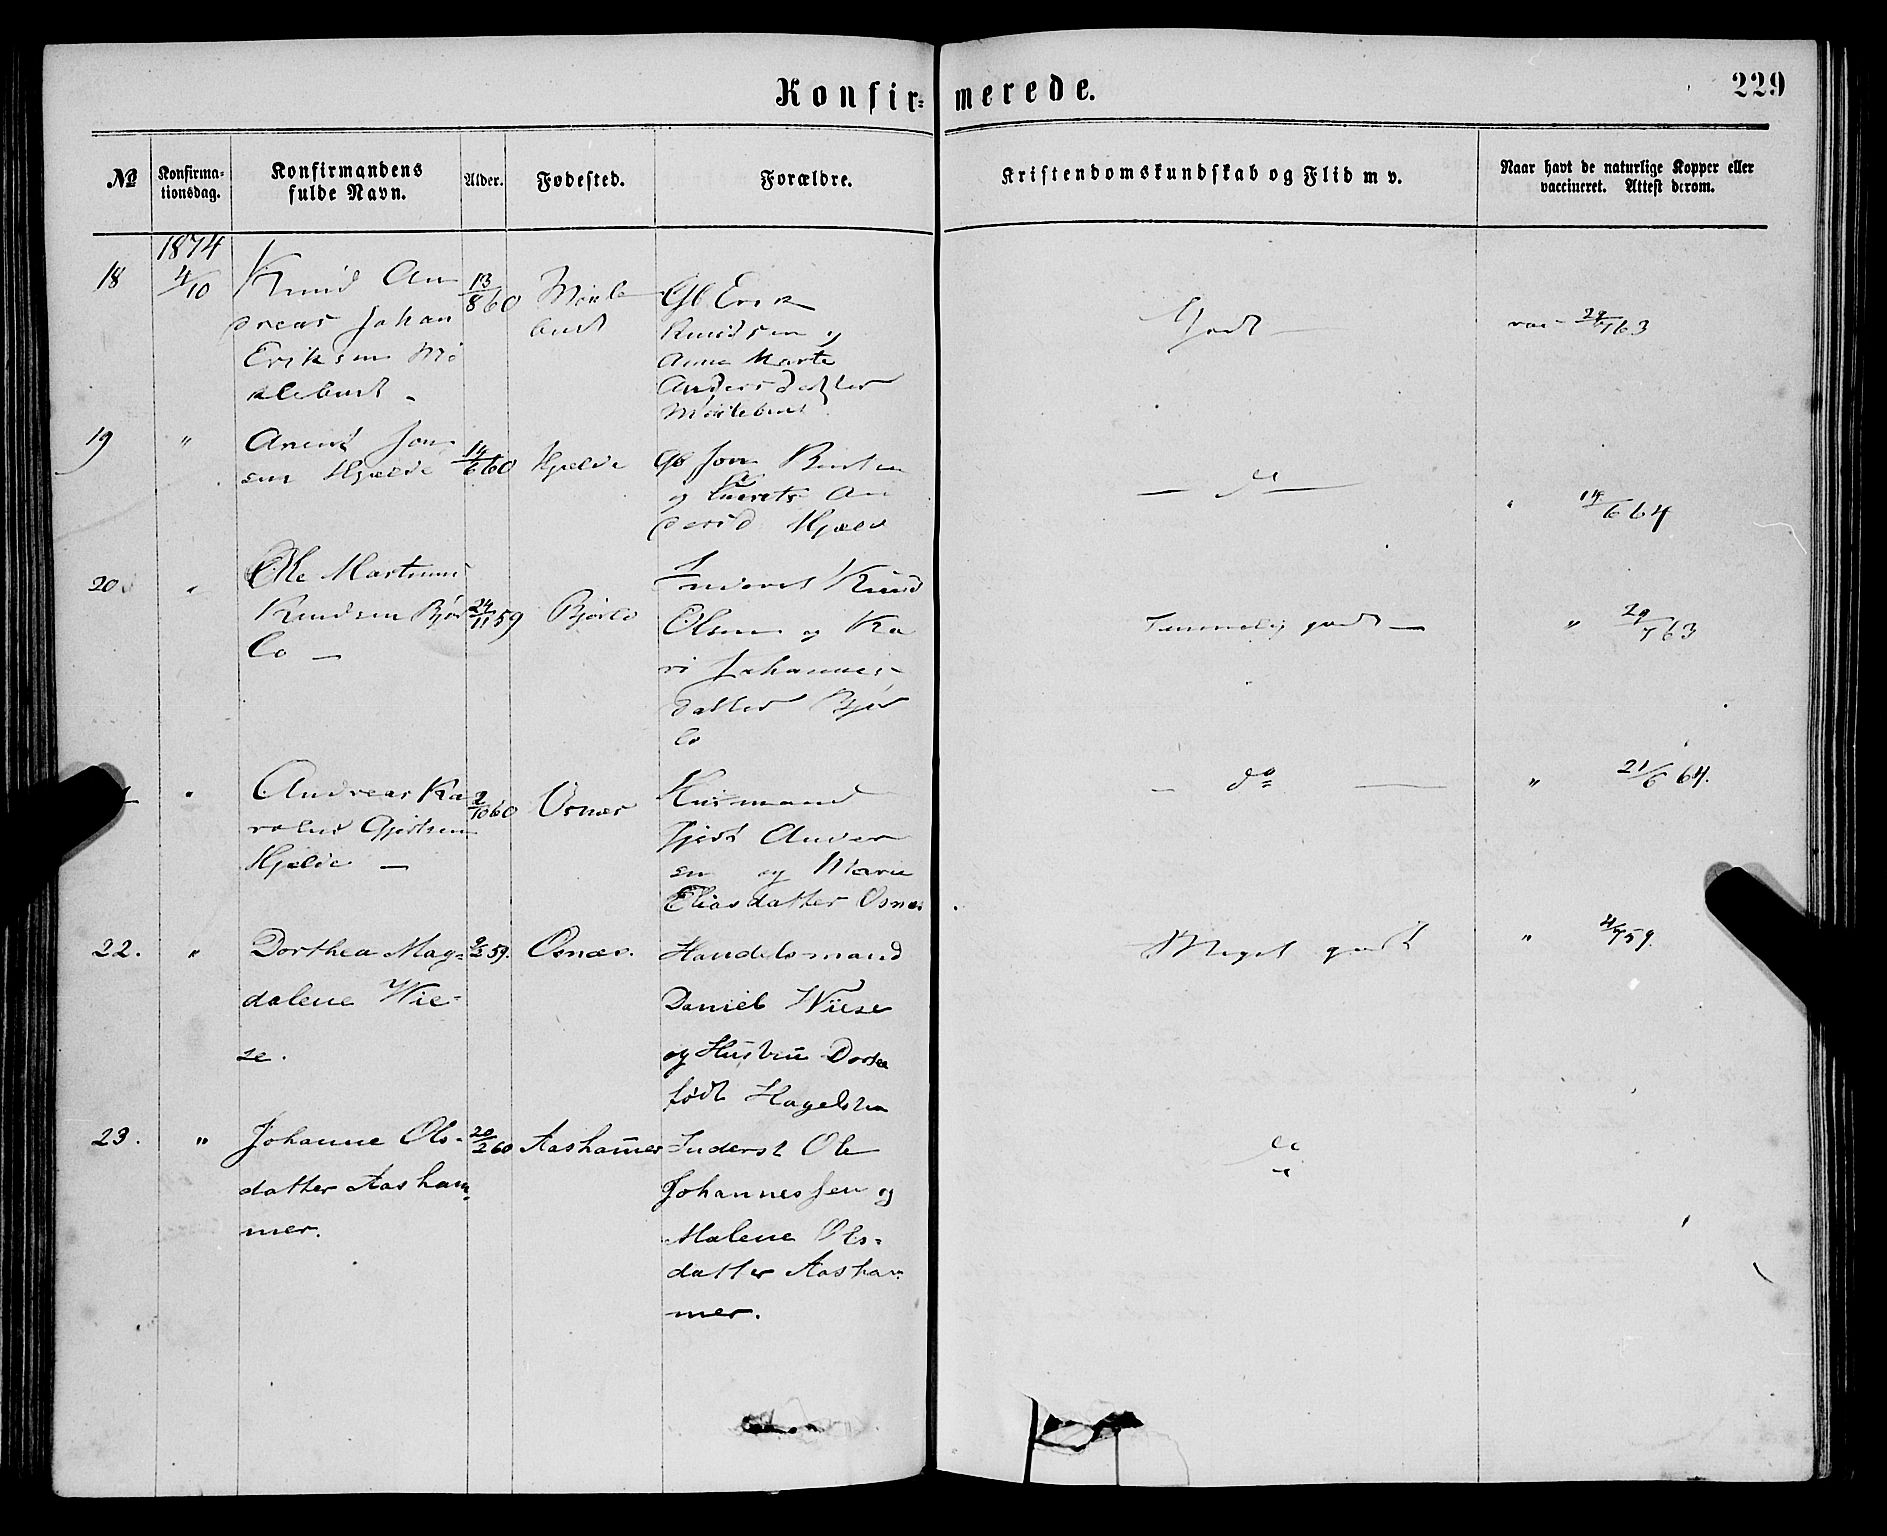 Konfir-merede.
229
№
Konfirma-
tionsdag.
Konfirmandens
fulde Navn.
Alder.
Fødested.
Forældre.
Kristendomskundskab og Flid m v.
Naar havt de naturlige Kopper eller
vaccineret. Attest derom.
1874
18 4/10 Knud An
dreas Johan
Eriksen Mö
klebust
13/8 60
Mökle
bust
Gb Erik
Knudsen og
Anne Marte
Andersdatter
Möklebust
Godt
vac 29/7 63
19 "
Arent Jon
sen Hjelde
14/6 60
Hjelde
Gb Jon
og An
dersd Hjeld
do
" 14/6 64
20 "
Ole Martinus
Knudsen Bjør
lo
24/11 59
Bjørlo
Inderst Knud
Olsen og Ka
ri Johannes
datter Bjør
lo
Temmelig godt
" 29/7 63
"
Andreas Ka
rolus Gjertsen
Hjelde
2/10 60
Osnes
Husmand
Gjert Ander
sen og Marie
Eliasdatter Osnes
do
" 21/6 64.
22. "
Dorthea Mag-
dalene Wie-
se.
9/2 59.
Osnæs.
Handelsmand
Daniel Wiese
og Hustru Dortea
født Hagelsten
Meget godt
" 59.
23. "
Johanne Ols-
datter Aasham-
mer.
20/2 60
Aashamer
Inderst Ole
Johannessen og
Malene Ols-
datter Aasham
mer.
do